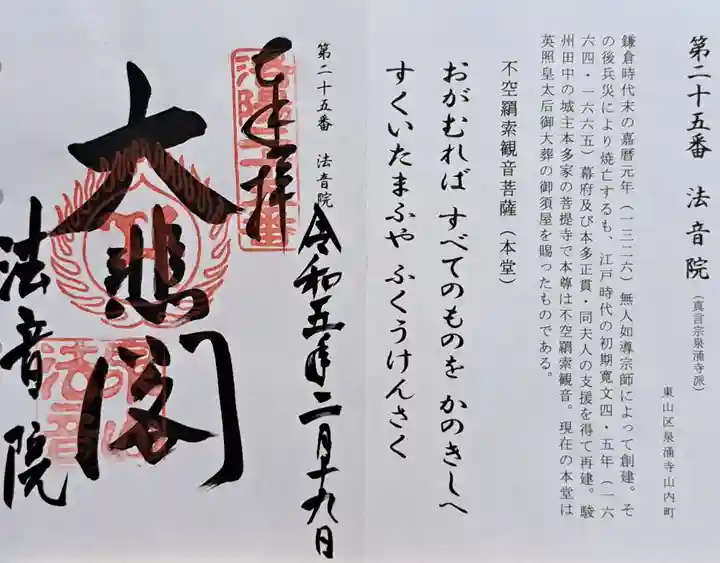 第二十五番 法音院(真言宗泉涌寺派)
東山区泉涌寺山内町
鎌倉時代末の嘉暦元年(一三二六)無人如導宗師によって創建。そ
の後兵災により焼亡するも、江戸時代の初期寛文四・五年(一六
六四・一六六五)幕府及び本多正貫・同夫人の支援を得て再建。駿
州田中の城主本多家の菩提寺で本尊は不空羂索観音。現在の本堂は
英照皇太后御大葬の御須屋を賜ったものである。
不空羂索観音菩薩(本堂)
おがむれば すべてのものを かのきしへ
すくいたまふや ふくうけんさく
第二十五番 法音院
令和五年二月十九日
奉拝
大悲閣
法音院